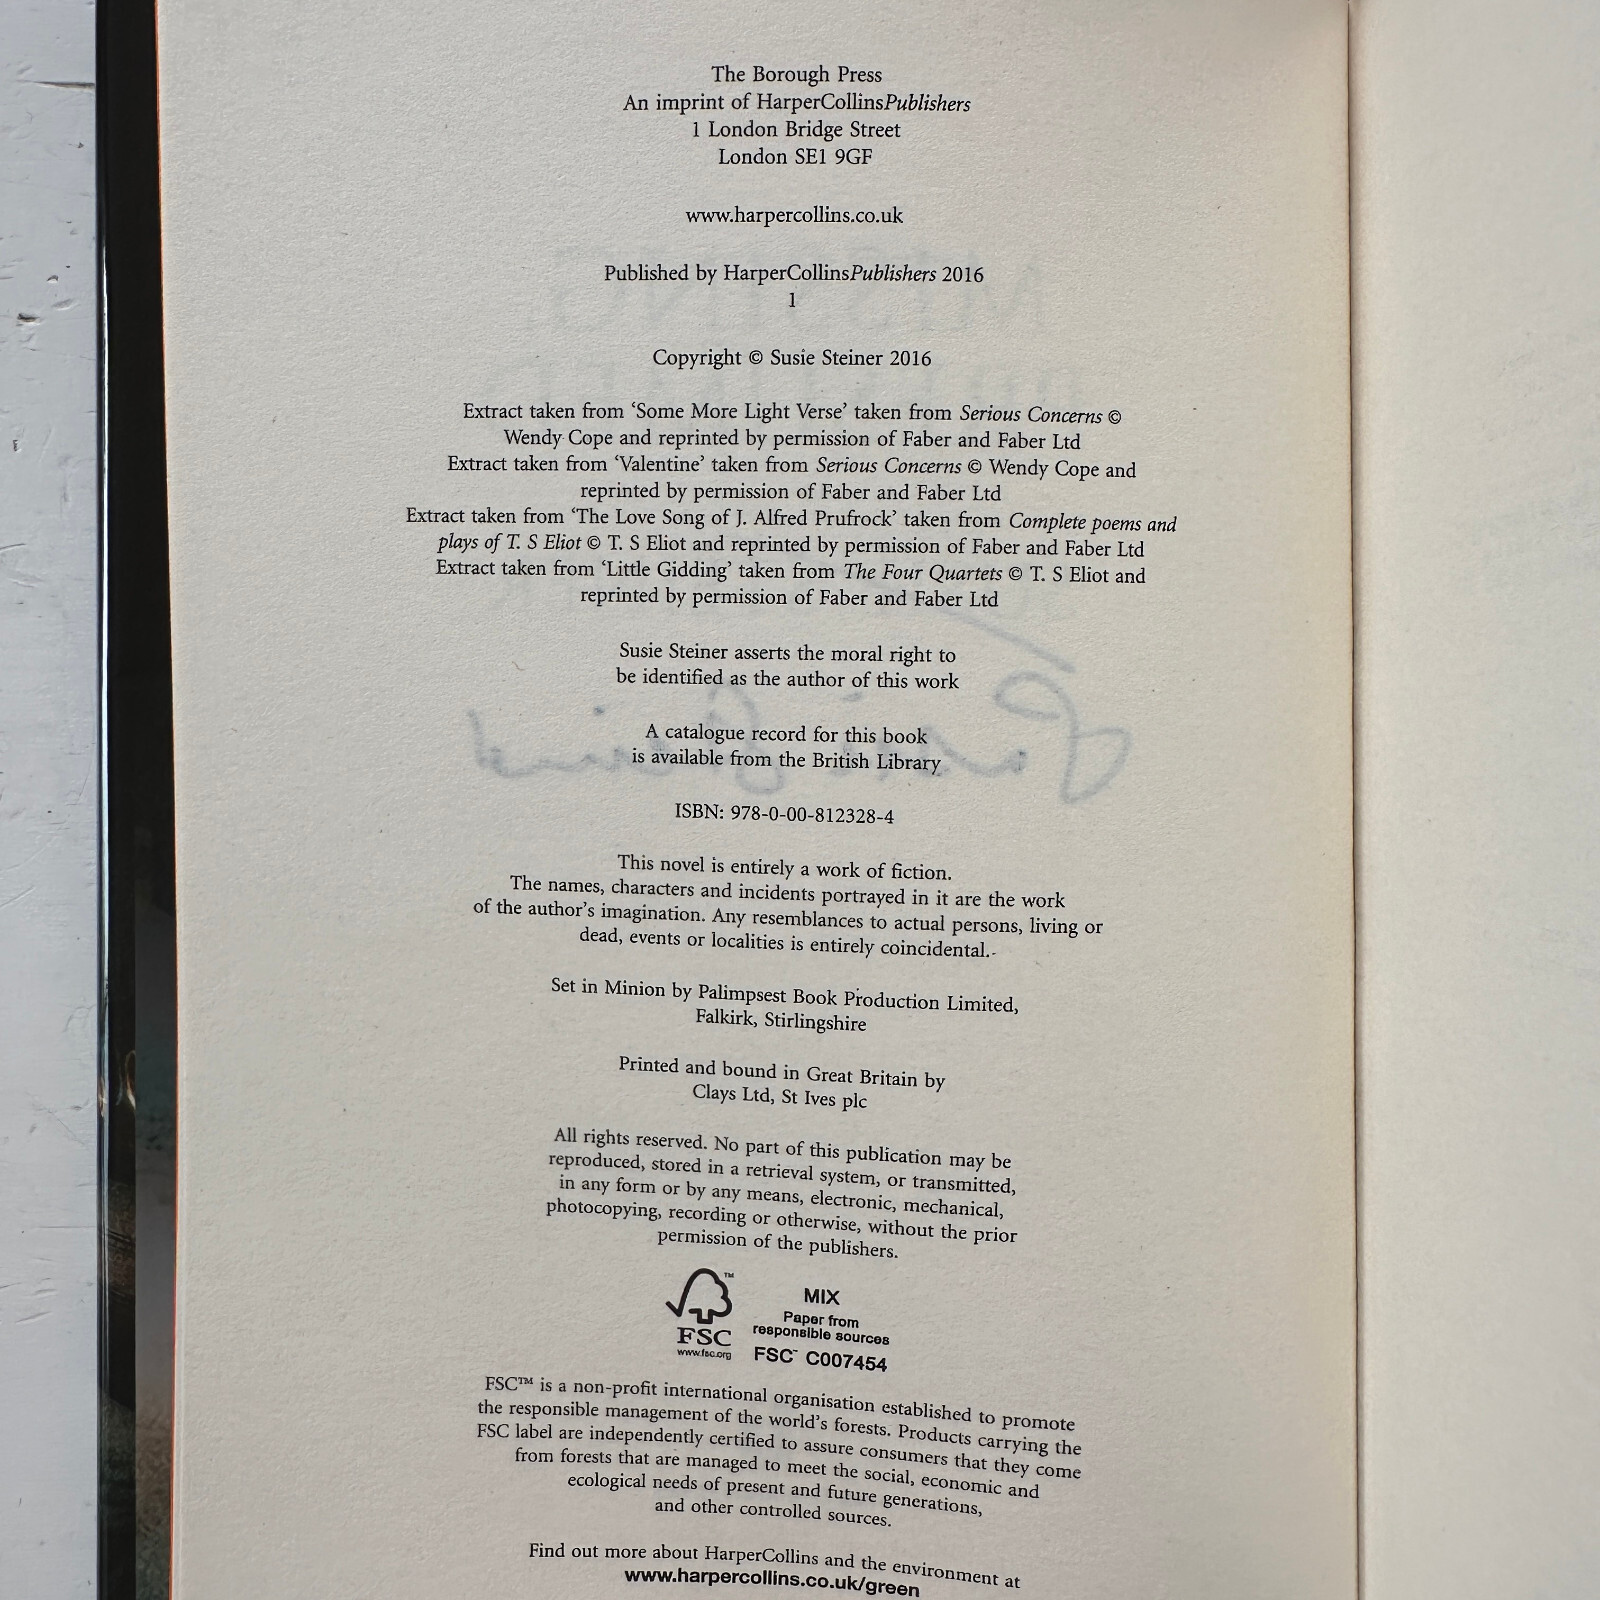 The Borough Press
An imprint of HarperCollinsPublishers
1 London Bridge Street
London SE1 9GF
www.harpercollins.co.uk
Published by HarperCollinsPublishers 2016
1
Copyright © Susie Steiner 2016
Extract taken from ‘Some More Light Verse’ taken from Serious Concerns ©
Wendy Cope and reprinted by permission of Faber and Faber Ltd
Extract taken from ‘Valentine’ taken from Serious Concerns © Wendy Cope and
reprinted by permission of Faber and Faber Ltd
Extract taken from ‘The Love Song of J. Alfred Prufrock’ taken from Complete poems and
plays of T. S Eliot © T. S Eliot and reprinted by permission of Faber and Faber Ltd
Extract taken from ‘Little Gidding’ taken from The Four Quartets © T. S Eliot and
reprinted by permission of Faber and Faber Ltd
Susie Steiner asserts the moral right to
be identified as the author of this work
A catalogue record for this book
is available from the British Library
ISBN: 978-0-00-812328-4
This novel is entirely a work of fiction.
The names, characters and incidents portrayed in it are the work
of the author’s imagination. Any resemblances to actual persons, living or
dead, events or localities is entirely coincidental.
Set in Minion by Palimpsest Book Production Limited,
Falkirk, Stirlingshire
Printed and bound in Great Britain by
Clays Ltd, St Ives plc
All rights reserved. No part of this publication may be
reproduced, stored in a retrieval system, or transmitted,
in any form or by any means, electronic, mechanical,
photocopying, recording or otherwise, without the prior
permission of the publishers.
FSC
www.fsc.org
MIX
Paper from
responsible sources
FSC™ C007454
FSC™ is a non-profit international organisation established to promote
the responsible management of the world’s forests. Products carrying the
FSC label are independently certified to assure consumers that they come
from forests that are managed to meet the social, economic and
ecological needs of present and future generations,
and other controlled sources.
Find out more about HarperCollins and the environment at
www.harpercollins.co.uk/green